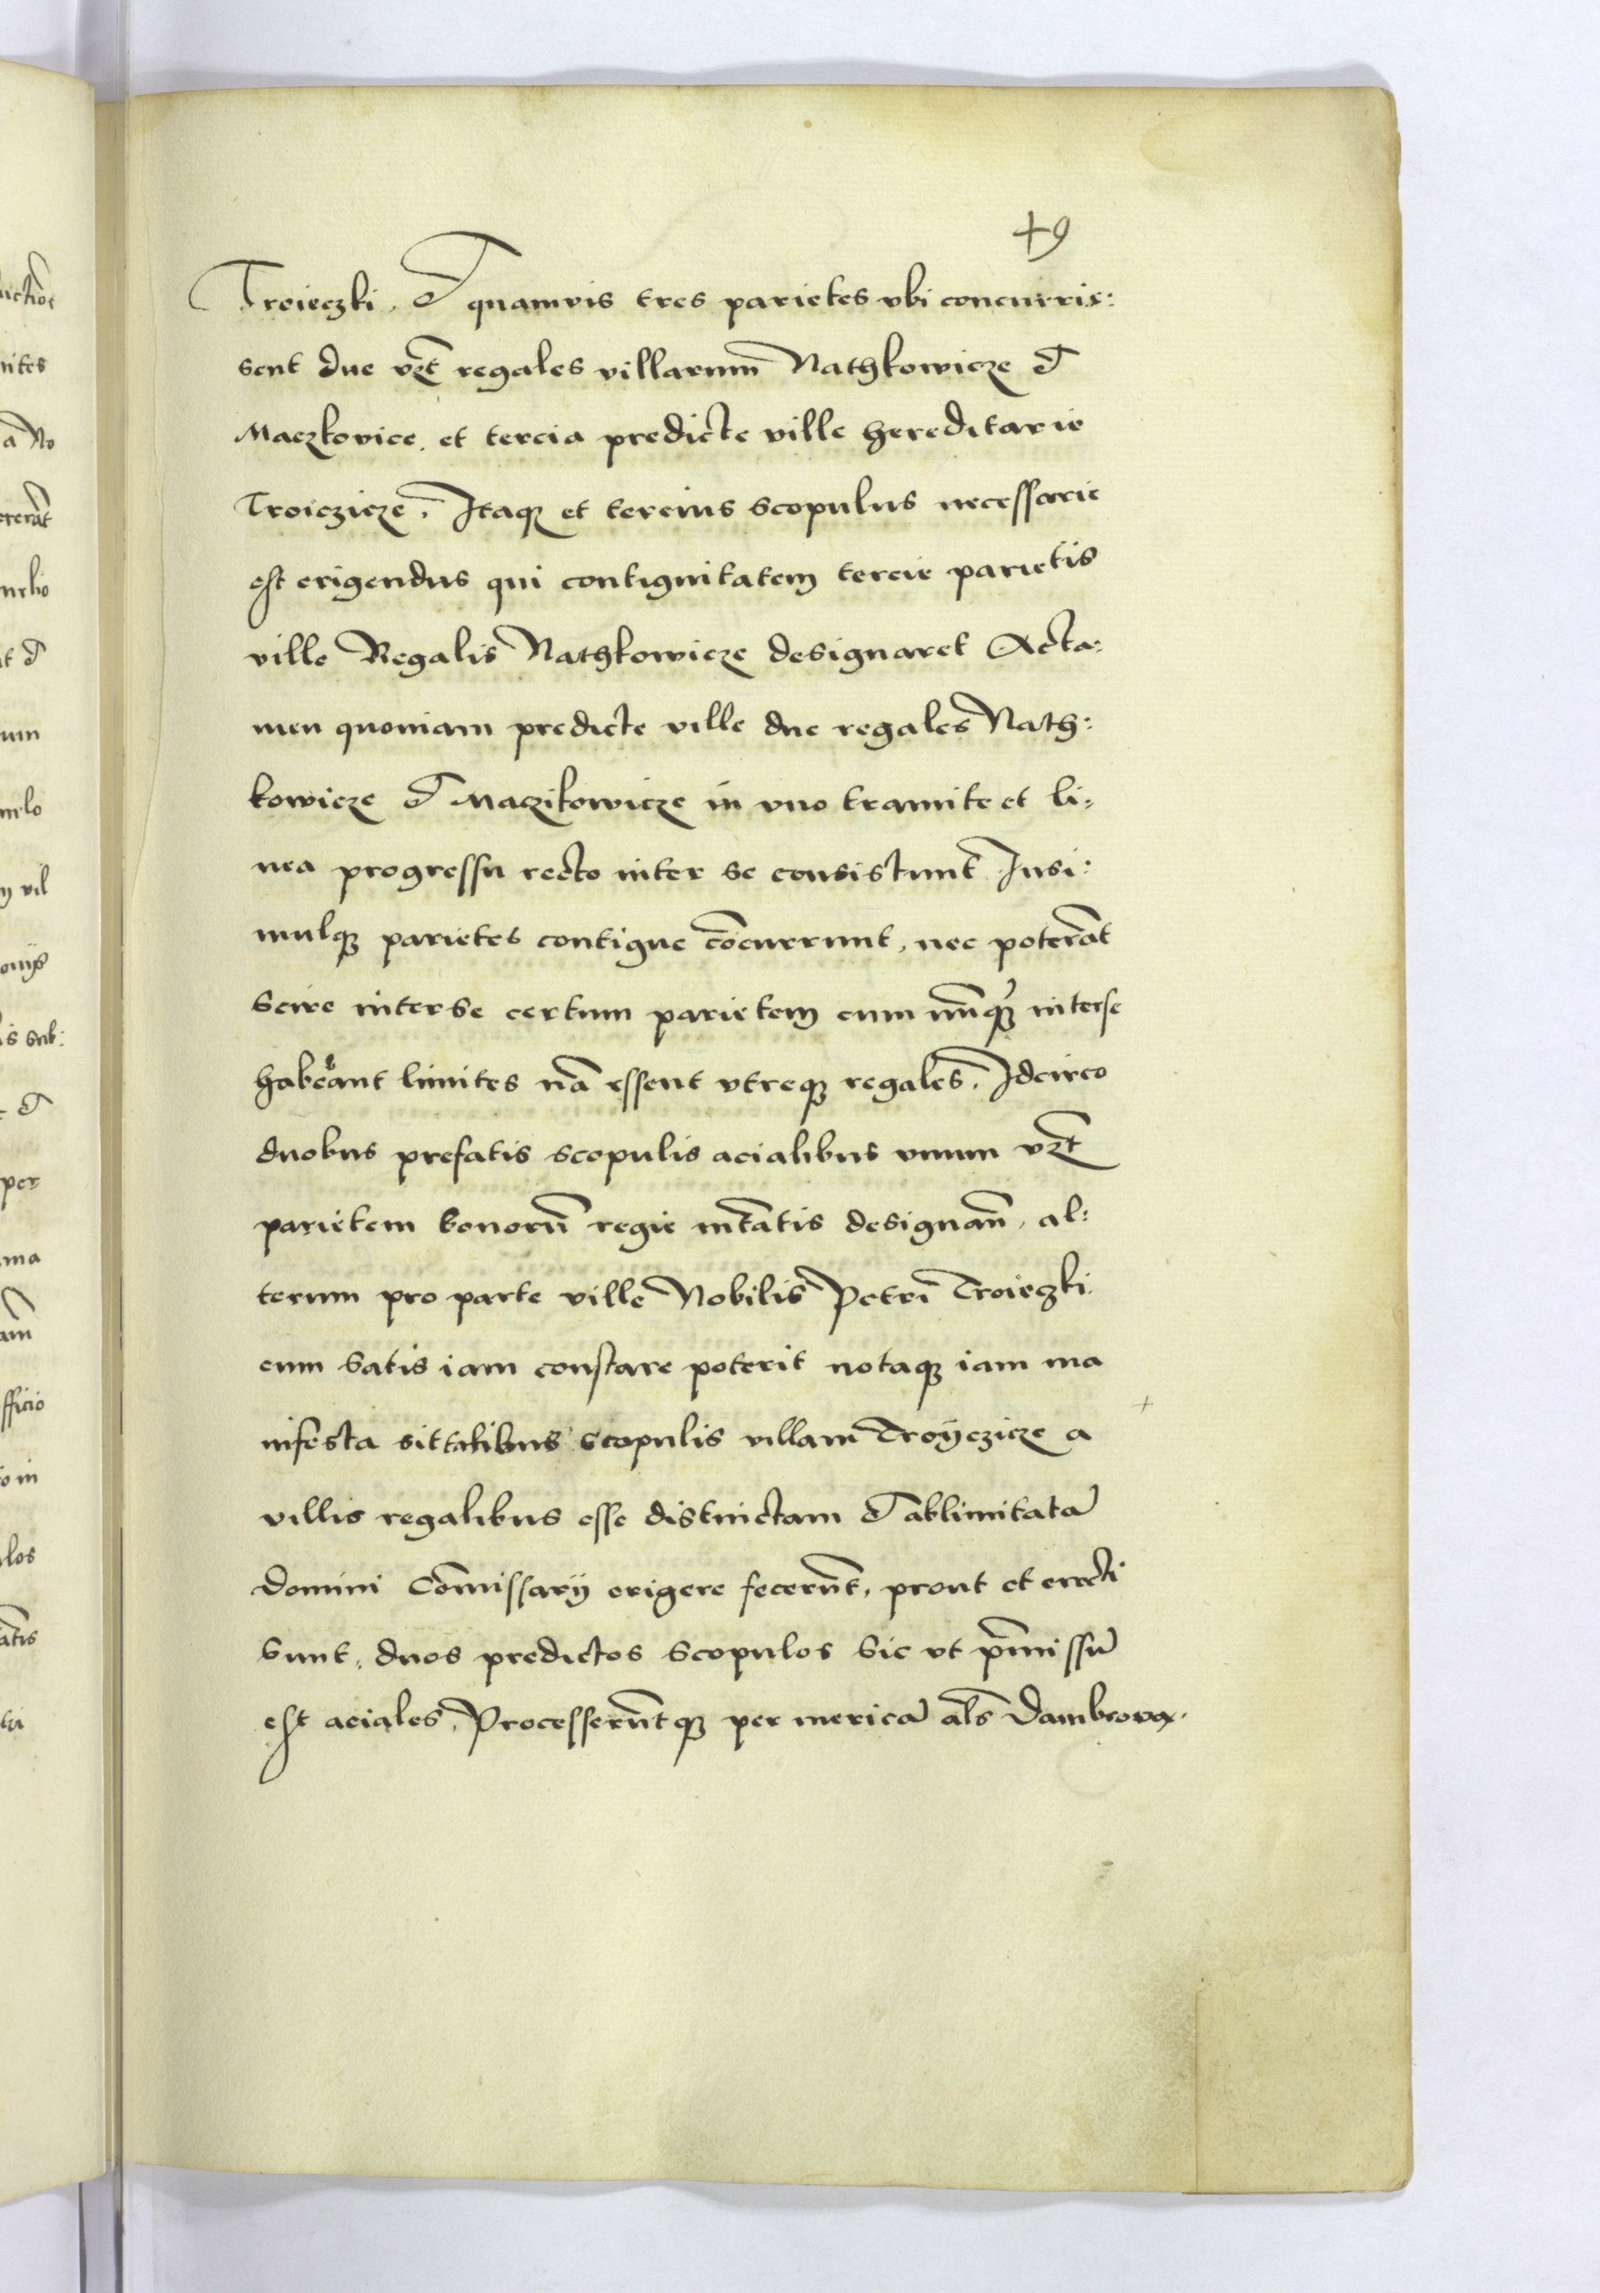 49
Troieczki, et quamvis tres parietes vbi concurris:
sent due vzt regales villarum Nathkowicze et
Maczkovice, et tercia predicte ville hereditarie
Troiczicze. Itaqz et tercius scopulus necessarie
est erigendus qui contiguitatem tercie parietis
ville Regalis Nathkowicze designaret Acta:
men quoniam predicte ville due regales Nath:
kowicze et Maczikowicze in vno tramite et li:
nea progressu recto inter se consistunt Insi:
mulqz parietes contigue cōcurrunt, nec poterāt
scire inter se certum parietem cum nūqz̄ interse
haberant limites nā essent vtreqz regales. Idcirco
duobus prefatis scopulis acialibus vnum vzt
parietem bonorū regie mtatis designan̄, al:
terum pro parte ville Nobilis Petri Troieczki.
cum satis iam constare poterit notaqz iam ma
nifesta sit talibus scopulis villam Troÿczicze a
villis regalibus esse distinctam et ablimitatā
Domini Cōmissarij erigere fecerūt, prout et erecti
sunt, duos predictos scopulos sic vt p̄missū
est aciales. Processerūtqz per mericā als Dambrova.